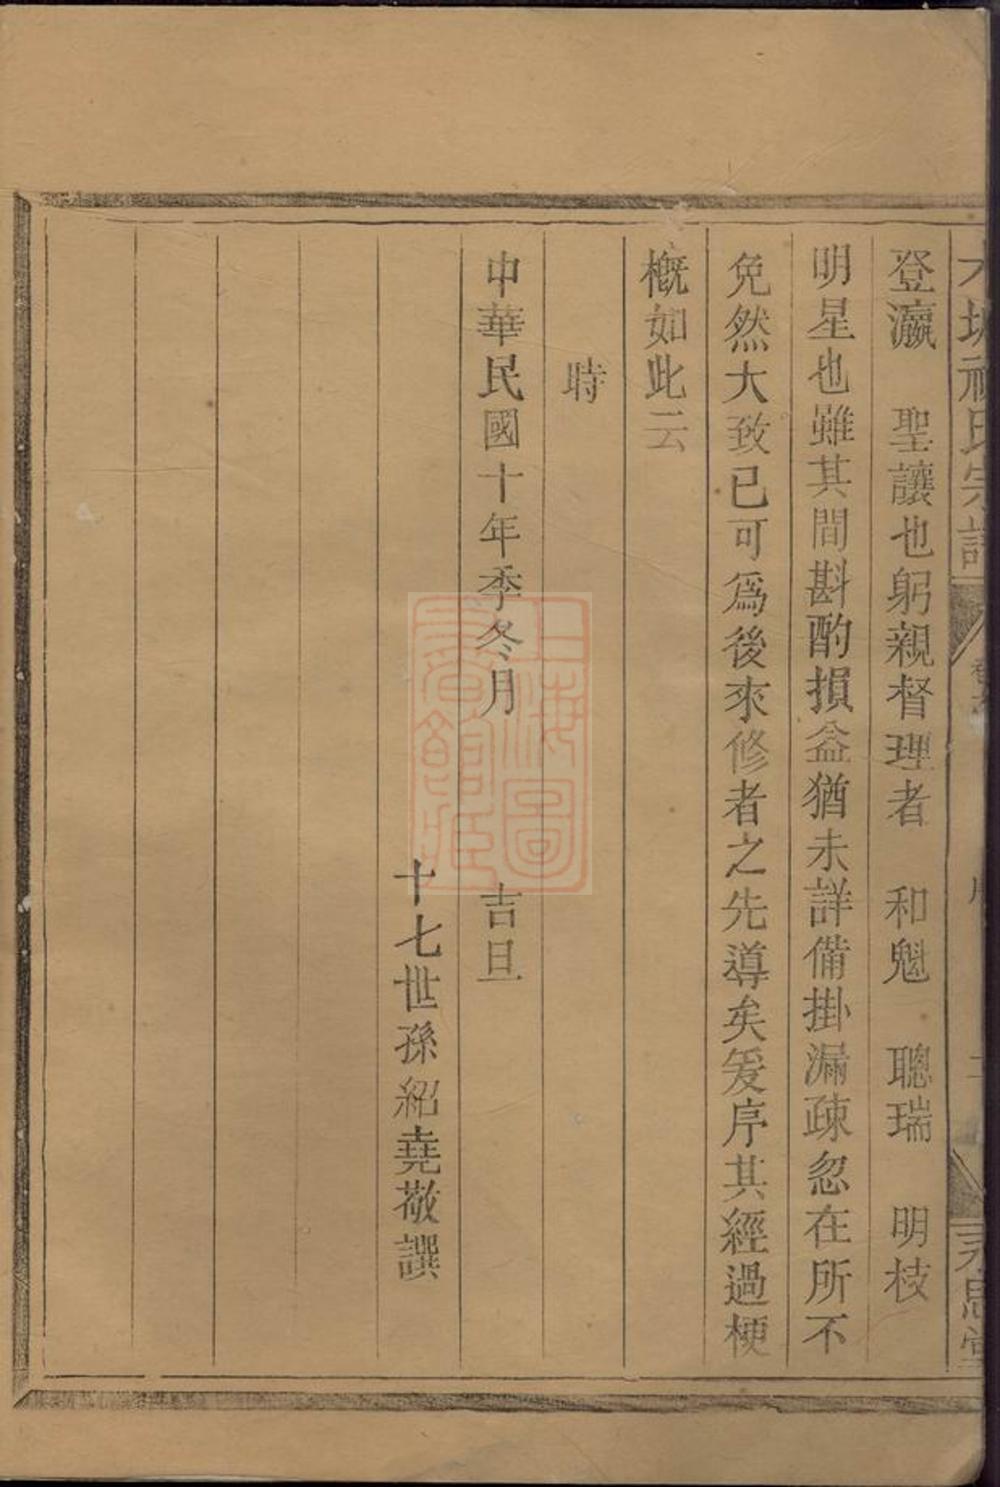 登瀛 聖讓也躬親督理者 和魁 聰瑞 明枝
明星也雖其間斟酌損益猶未詳備掛漏疎忽在所不
免然大致已可爲後來修者之先導矣爰序其經過梗
概如此云
時
中華民國十年季冬月 吉旦
十七世孫紹堯敬譔
上海圖書館藏